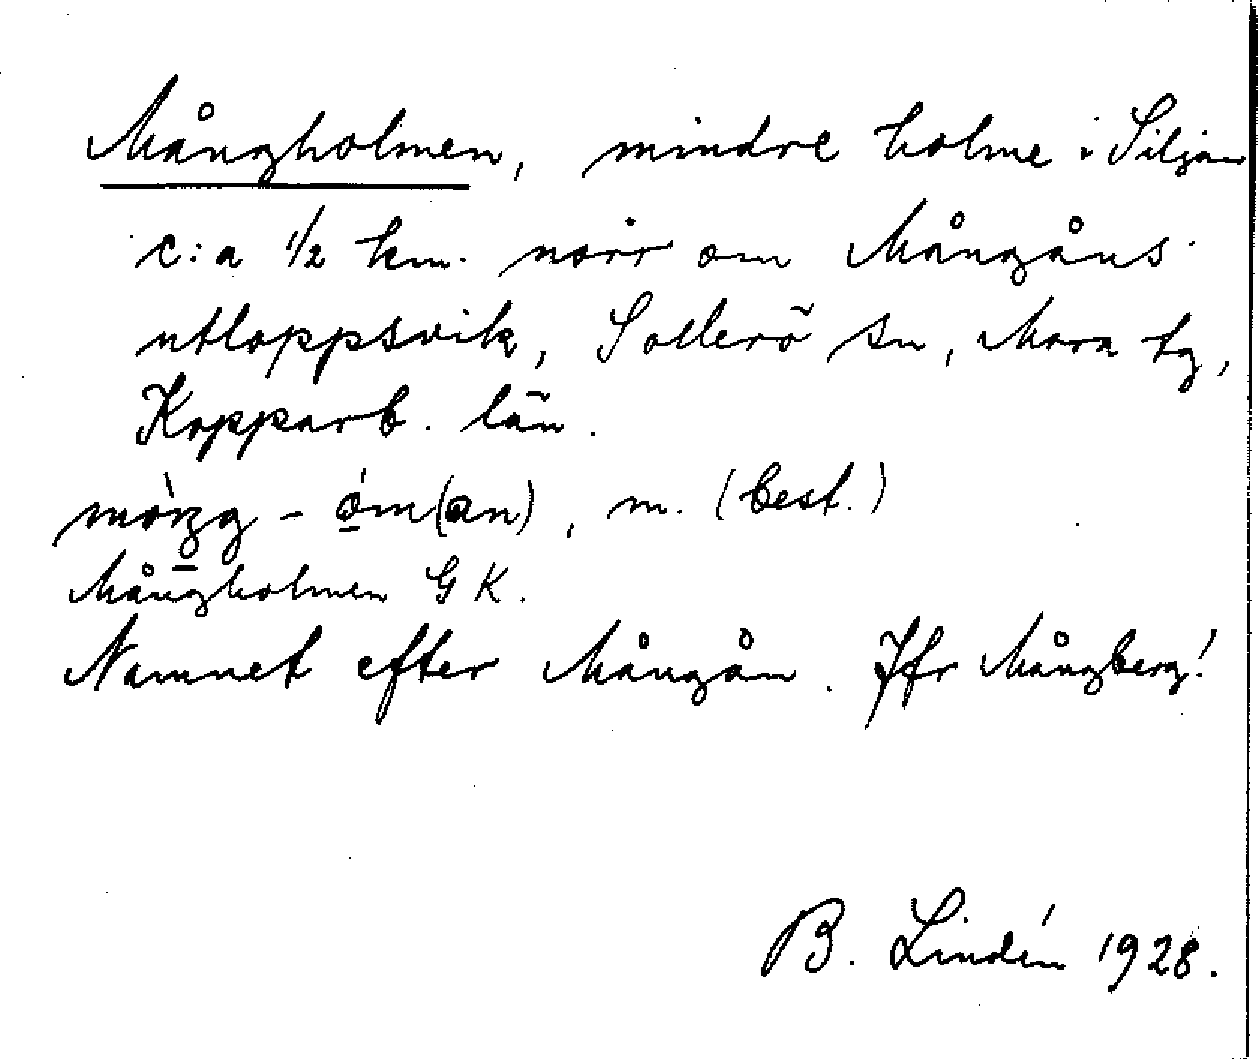 Mångholmen, mindre holme i Siljan
c:a 1/2 km. norr om Mångåns
utloppsvik, Sollerö sn, Mora tg,
Kopparb. län.
m. (best.)
Mångholmen GK.
Namnet efter Mångån. Jfr Mångberg!
B. Lindén 1928.